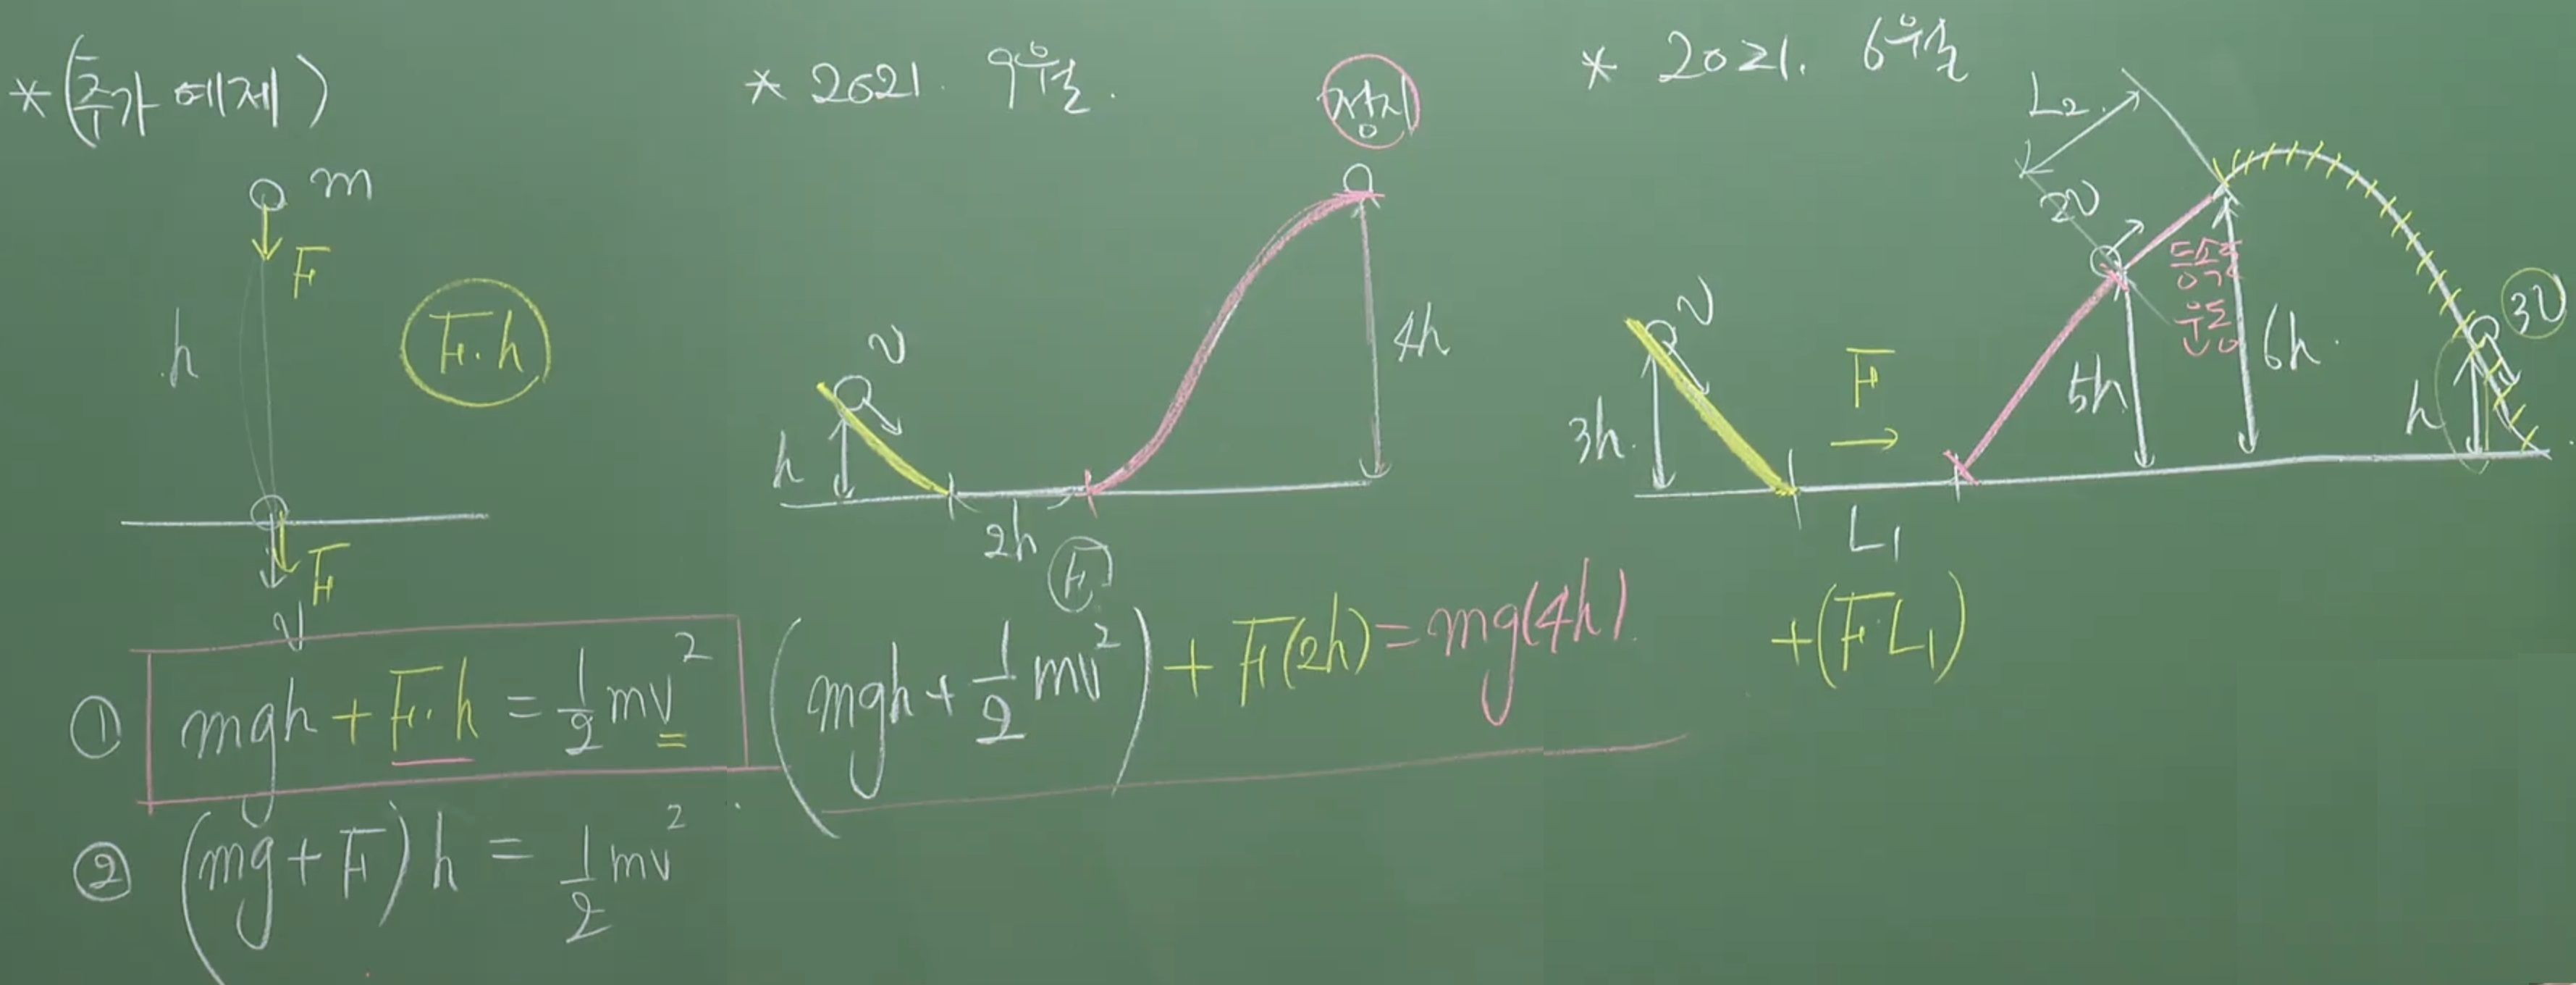 * (추가 예제)
m
F
h
F·h
F
v
① mgh + F·h = 1/2 mv²
② (mg + F) h = 1/2 mv²
* 2021. 9월.
정지
v
h
2h
F
4h
(mgh + 1/2 mv²) + F(2h) = mg(4h)
* 2021. 6월
v
3h.
F
L₁
L₂
2v
등속력
운동
5h
6h.
h
3v
+(F·L₁)